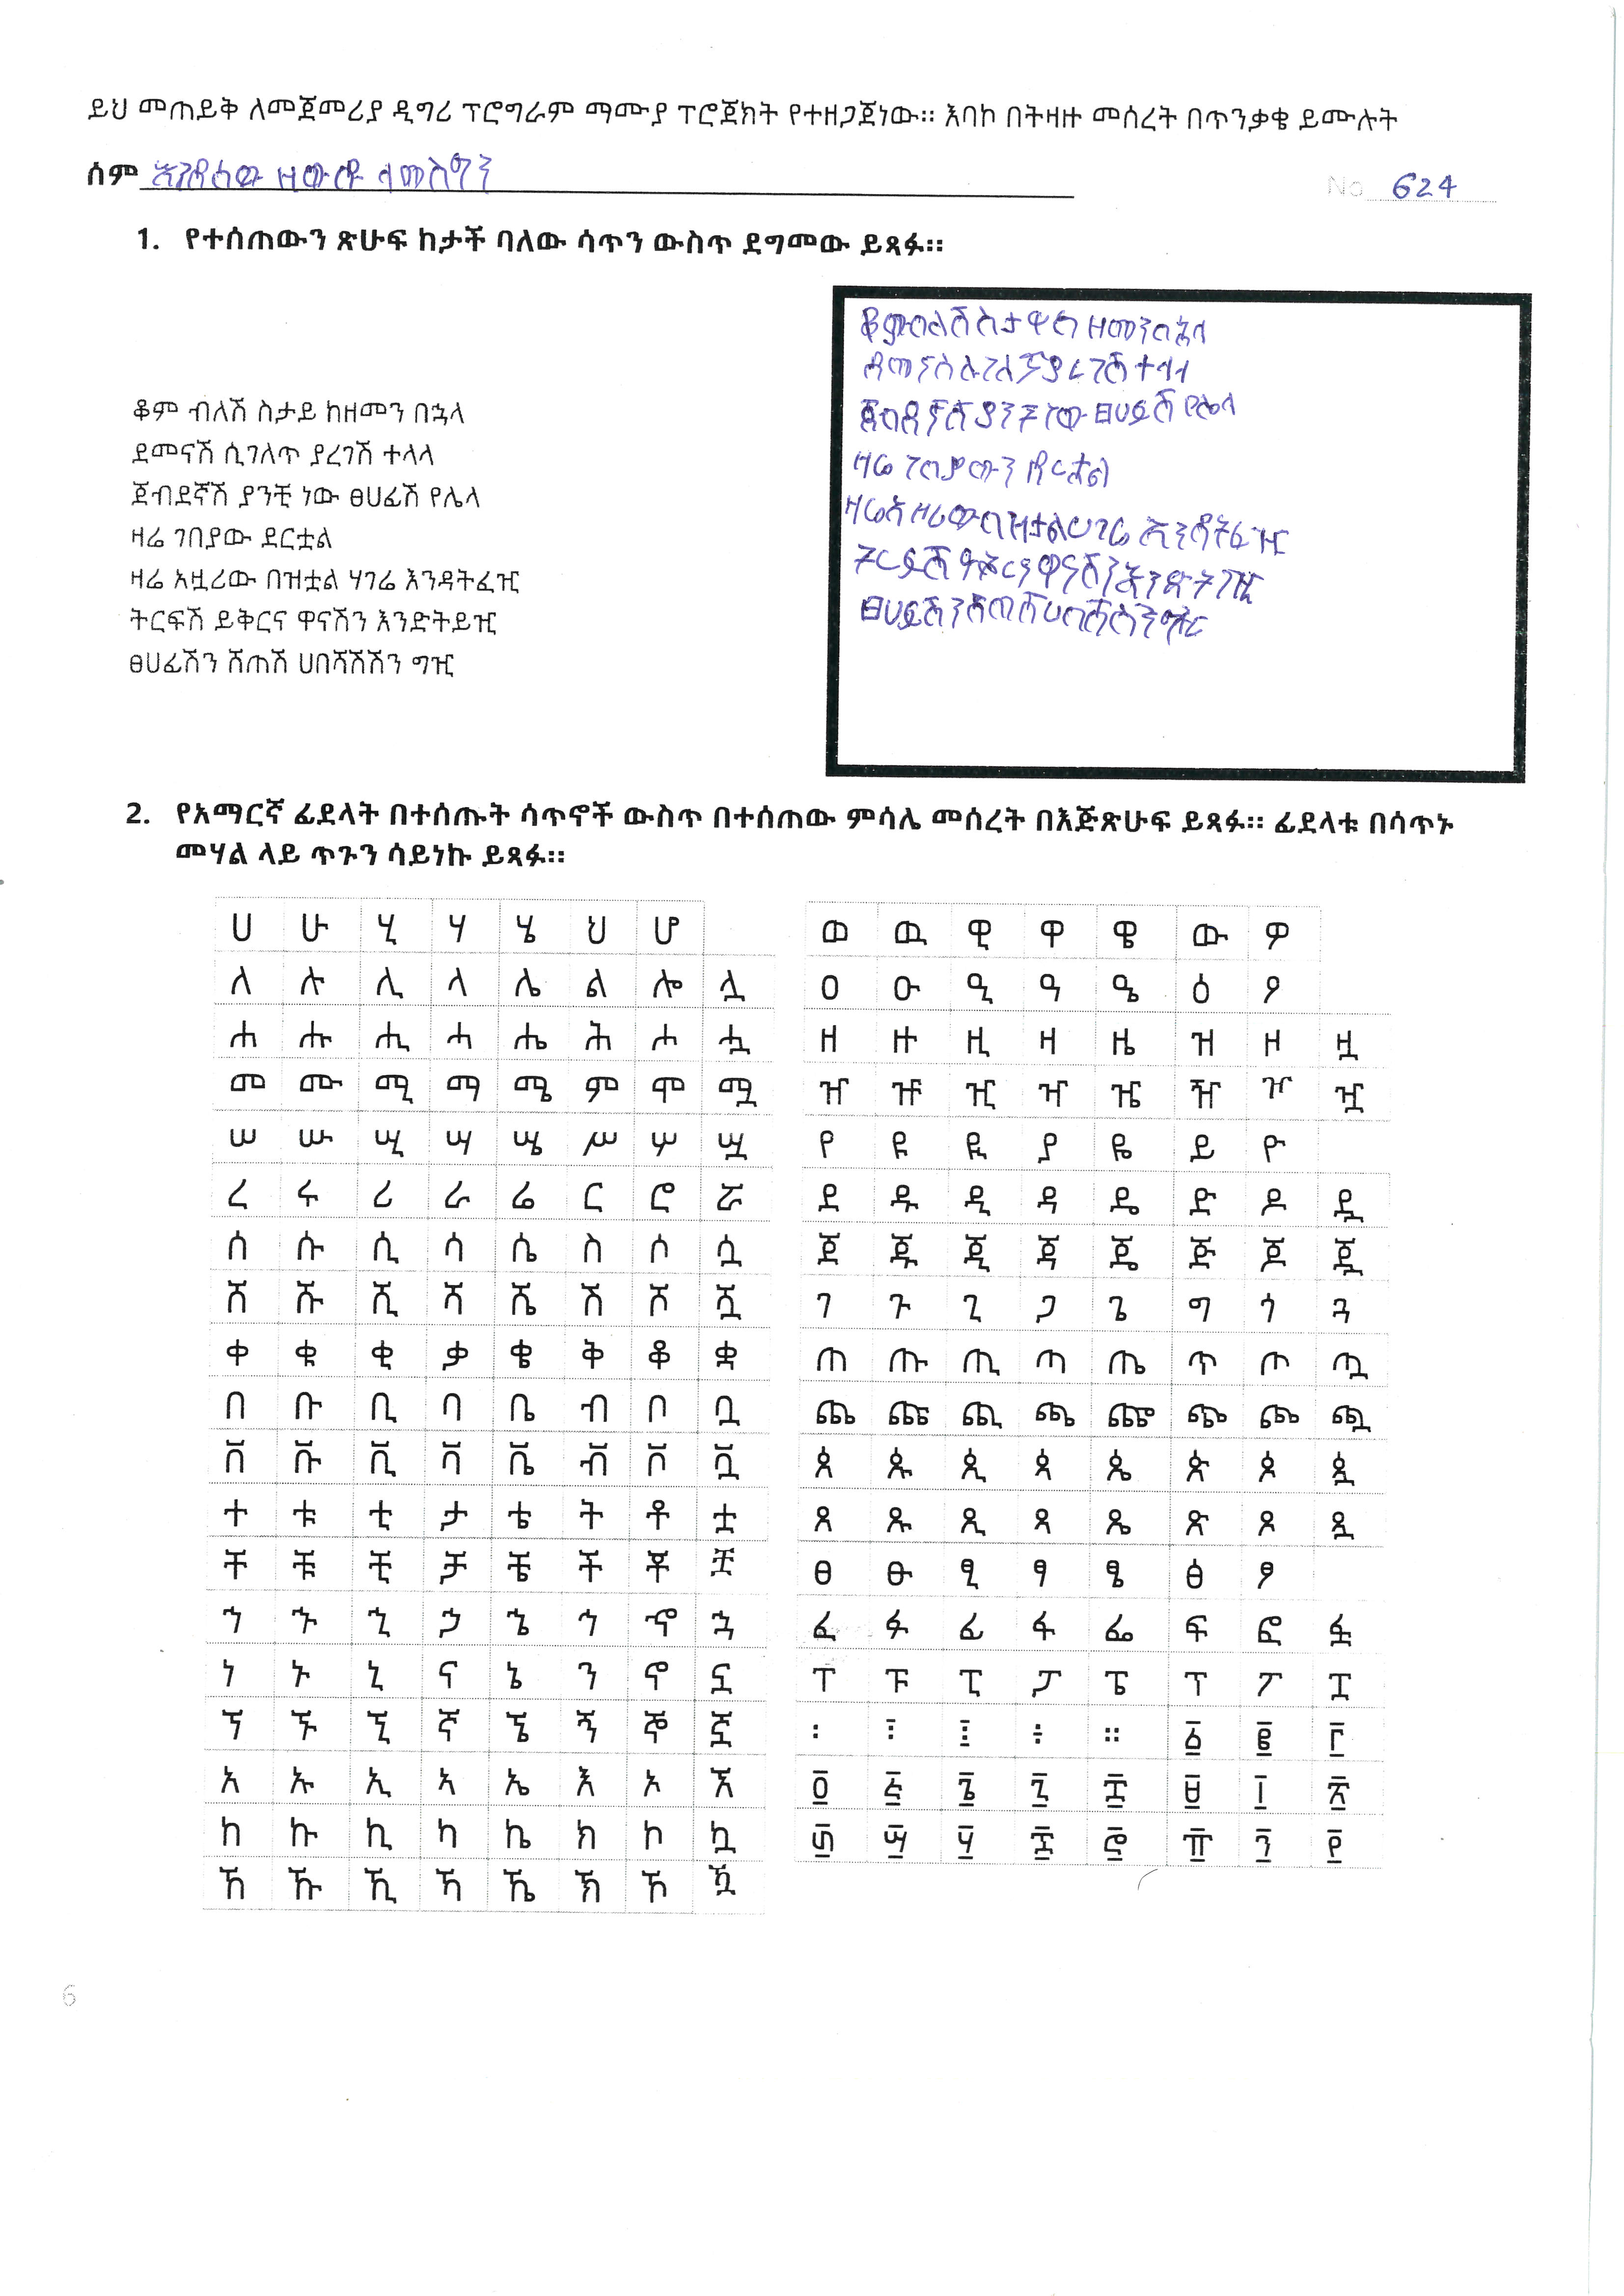 ይህ መጠይቅ ለመጀመሪያ ዲግሪ ፕሮግራም ማሙያ ፕሮጀክት የተዘጋጀነው። እባኮ በትዛዙ መሰረት በጥንቃቄ ይሙሉት
ስም እንዳሳው ዘውዱ ላመስግን
No 624
1. የተሰጠውን ጽሁፍ ከታች ባለው ሳጥን ውስጥ ደግመው ይጻፉ።
ቆም ብለሽ ስታይ ከዘመን በኋላ
ደመናሽ ሲገለጥ ያረገሽ ተላላ
ጀብደኛሽ ያንቺ ነው ፀሀፊሽ የሌላ
ዛሬ ገበያው ደርቷል
ዛሬ አዟሪው በዝቷል ሃገሬ እንዳትፈዢ
ትርፍሽ ይቅርና ዋናሽን እንድትይዢ
ፀሀፊሽን ሸጠሽ ሀበሻሽሽን ግዢ
ዘመን በኋላ
ተላላ
ያንቺ ነው ፀሀፊሽ የሌላ
ዛሬ ገበያውን ደርቷል
2. የአማርኛ ፊደላት በተሰጡት ሳጥኖች ውስጥ በተሰጠው ምሳሌ መሰረት በእጅጽሁፍ ይጻፉ። ፊደላቱ በሳጥኑ
መሃል ላይ ጥጉን ሳይነኩ ይጻፉ።
ሀ ሁ ሂ ሃ ሄ ህ ሆ
ለ ሉ ሊ ላ ሌ ል ሎ ሏ
ሐ ሑ ሒ ሓ ሔ ሕ ሖ ሗ
መ ሙ ሚ ማ ሜ ም ሞ ሟ
ሠ ሡ ሢ ሣ ሤ ሥ ሦ ሧ
ረ ሩ ሪ ራ ሬ ር ሮ ሯ
ሰ ሱ ሲ ሳ ሴ ስ ሶ ሷ
ሸ ሹ ሺ ሻ ሼ ሽ ሾ ሿ
ቀ ቁ ቂ ቃ ቄ ቅ ቆ ቋ
በ ቡ ቢ ባ ቤ ብ ቦ ቧ
ቨ ቩ ቪ ቫ ቬ ቭ ቮ ቯ
ተ ቱ ቲ ታ ቴ ት ቶ ቷ
ቸ ቹ ቺ ቻ ቼ ች ቾ ቿ
ኀ ኁ ኂ ኃ ኄ ኅ ኆ ኋ
ነ ኑ ኒ ና ኔ ን ኖ ኗ
ኘ ኙ ኚ ኛ ኜ ኝ ኞ ኟ
አ ኡ ኢ ኣ ኤ እ ኦ ኧ
ከ ኩ ኪ ካ ኬ ክ ኮ ኳ
ኸ ኹ ኺ ኻ ኼ ኽ ኾ ዃ
ወ ዉ ዊ ዋ ዌ ው ዎ
ዐ ዑ ዒ ዓ ዔ ዕ ዖ
ዘ ዙ ዚ ዛ ዜ ዝ ዞ ዟ
ዠ ዡ ዢ ዣ ዤ ዥ ዦ ዧ
የ ዩ ዪ ያ ዬ ይ ዮ
ደ ዱ ዲ ዳ ዴ ድ ዶ ዷ
ጀ ጁ ጂ ጃ ጄ ጅ ጆ ጇ
ገ ጉ ጊ ጋ ጌ ግ ጎ ጓ
ጠ ጡ ጢ ጣ ጤ ጥ ጦ ጧ
ጨ ጩ ጪ ጫ ጬ ጭ ጮ ጯ
ጰ ጱ ጲ ጳ ጴ ጵ ጶ ጷ
ጸ ጹ ጺ ጻ ጼ ጽ ጾ ጿ
ፀ ፁ ፂ ፃ ፄ ፅ ፆ
ፈ ፉ ፊ ፋ ፌ ፍ ፎ ፏ
ፐ ፑ ፒ ፓ ፔ ፕ ፖ ፗ
፡ ፣ ፤ ፥ ። ፩ ፪ ፫
፬ ፭ ፮ ፯ ፰ ፱ ፲ ፳
፴ ፵ ፶ ፷ ፸ ፹ ፺ ፻
6